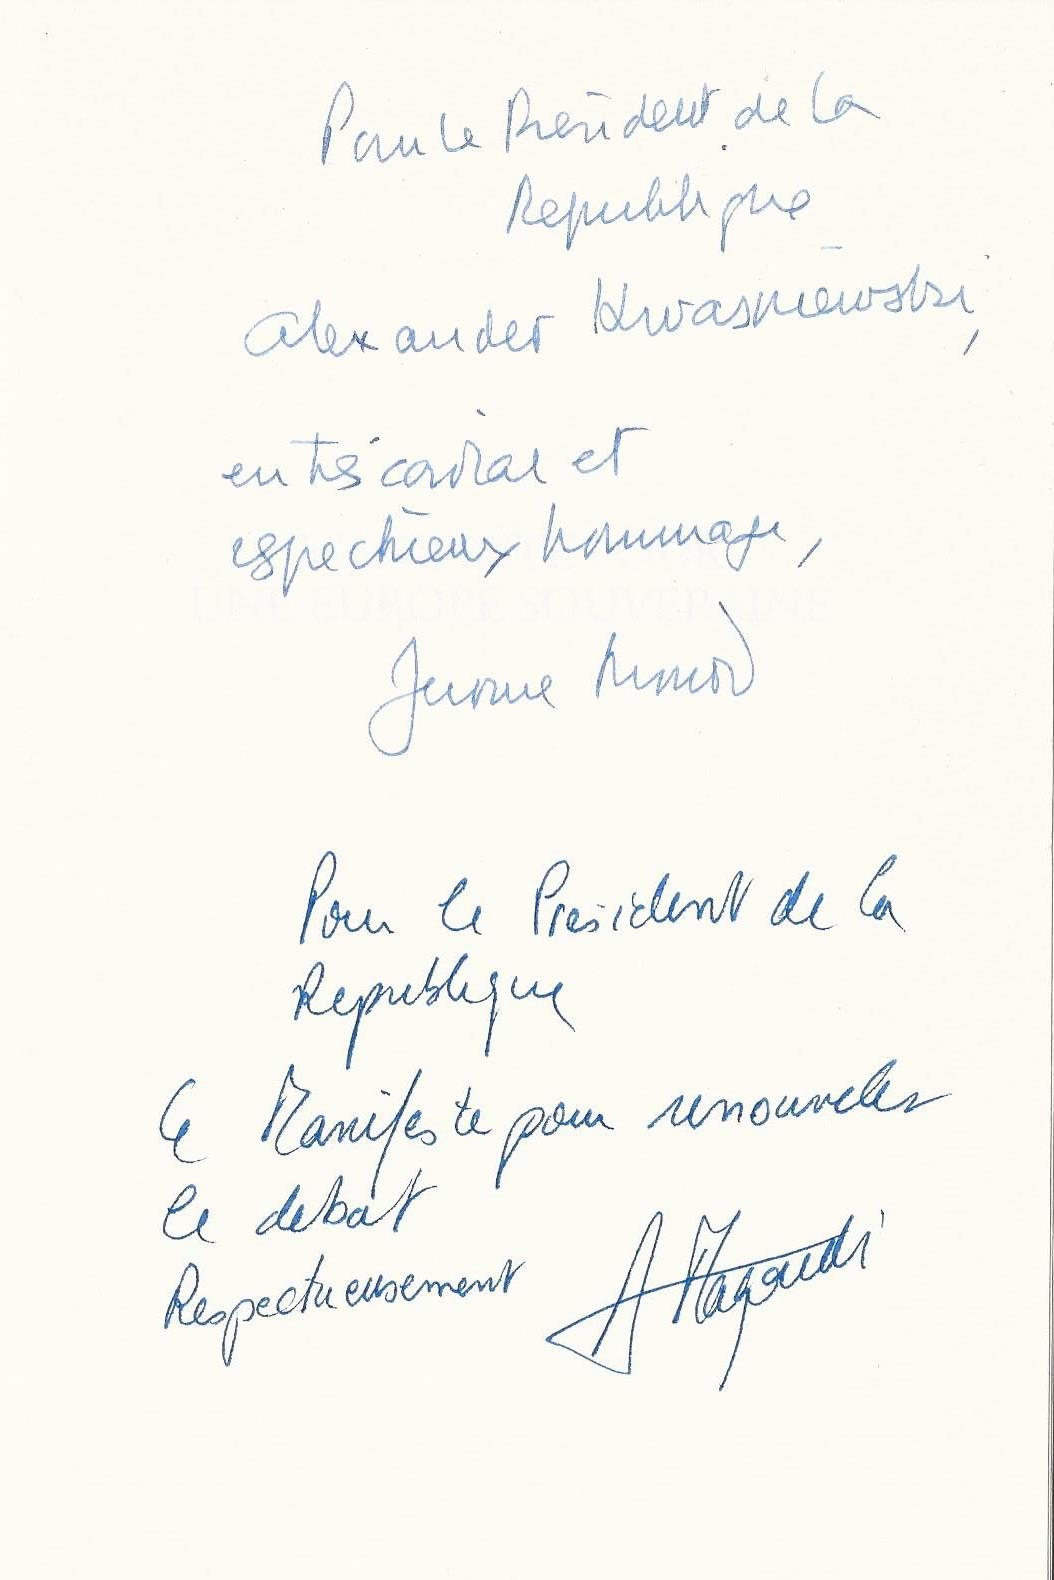 Pour le Président de la
Republique
Alexander Kwasniewski,
en très cordial et
respectueux hommage,
UNE EUROPE SOUVERAINE
Jerome Monod
Pour le President de la
Republique
Ce Manifeste pour renouveler
le debat
Respectueusement
A Magoudi